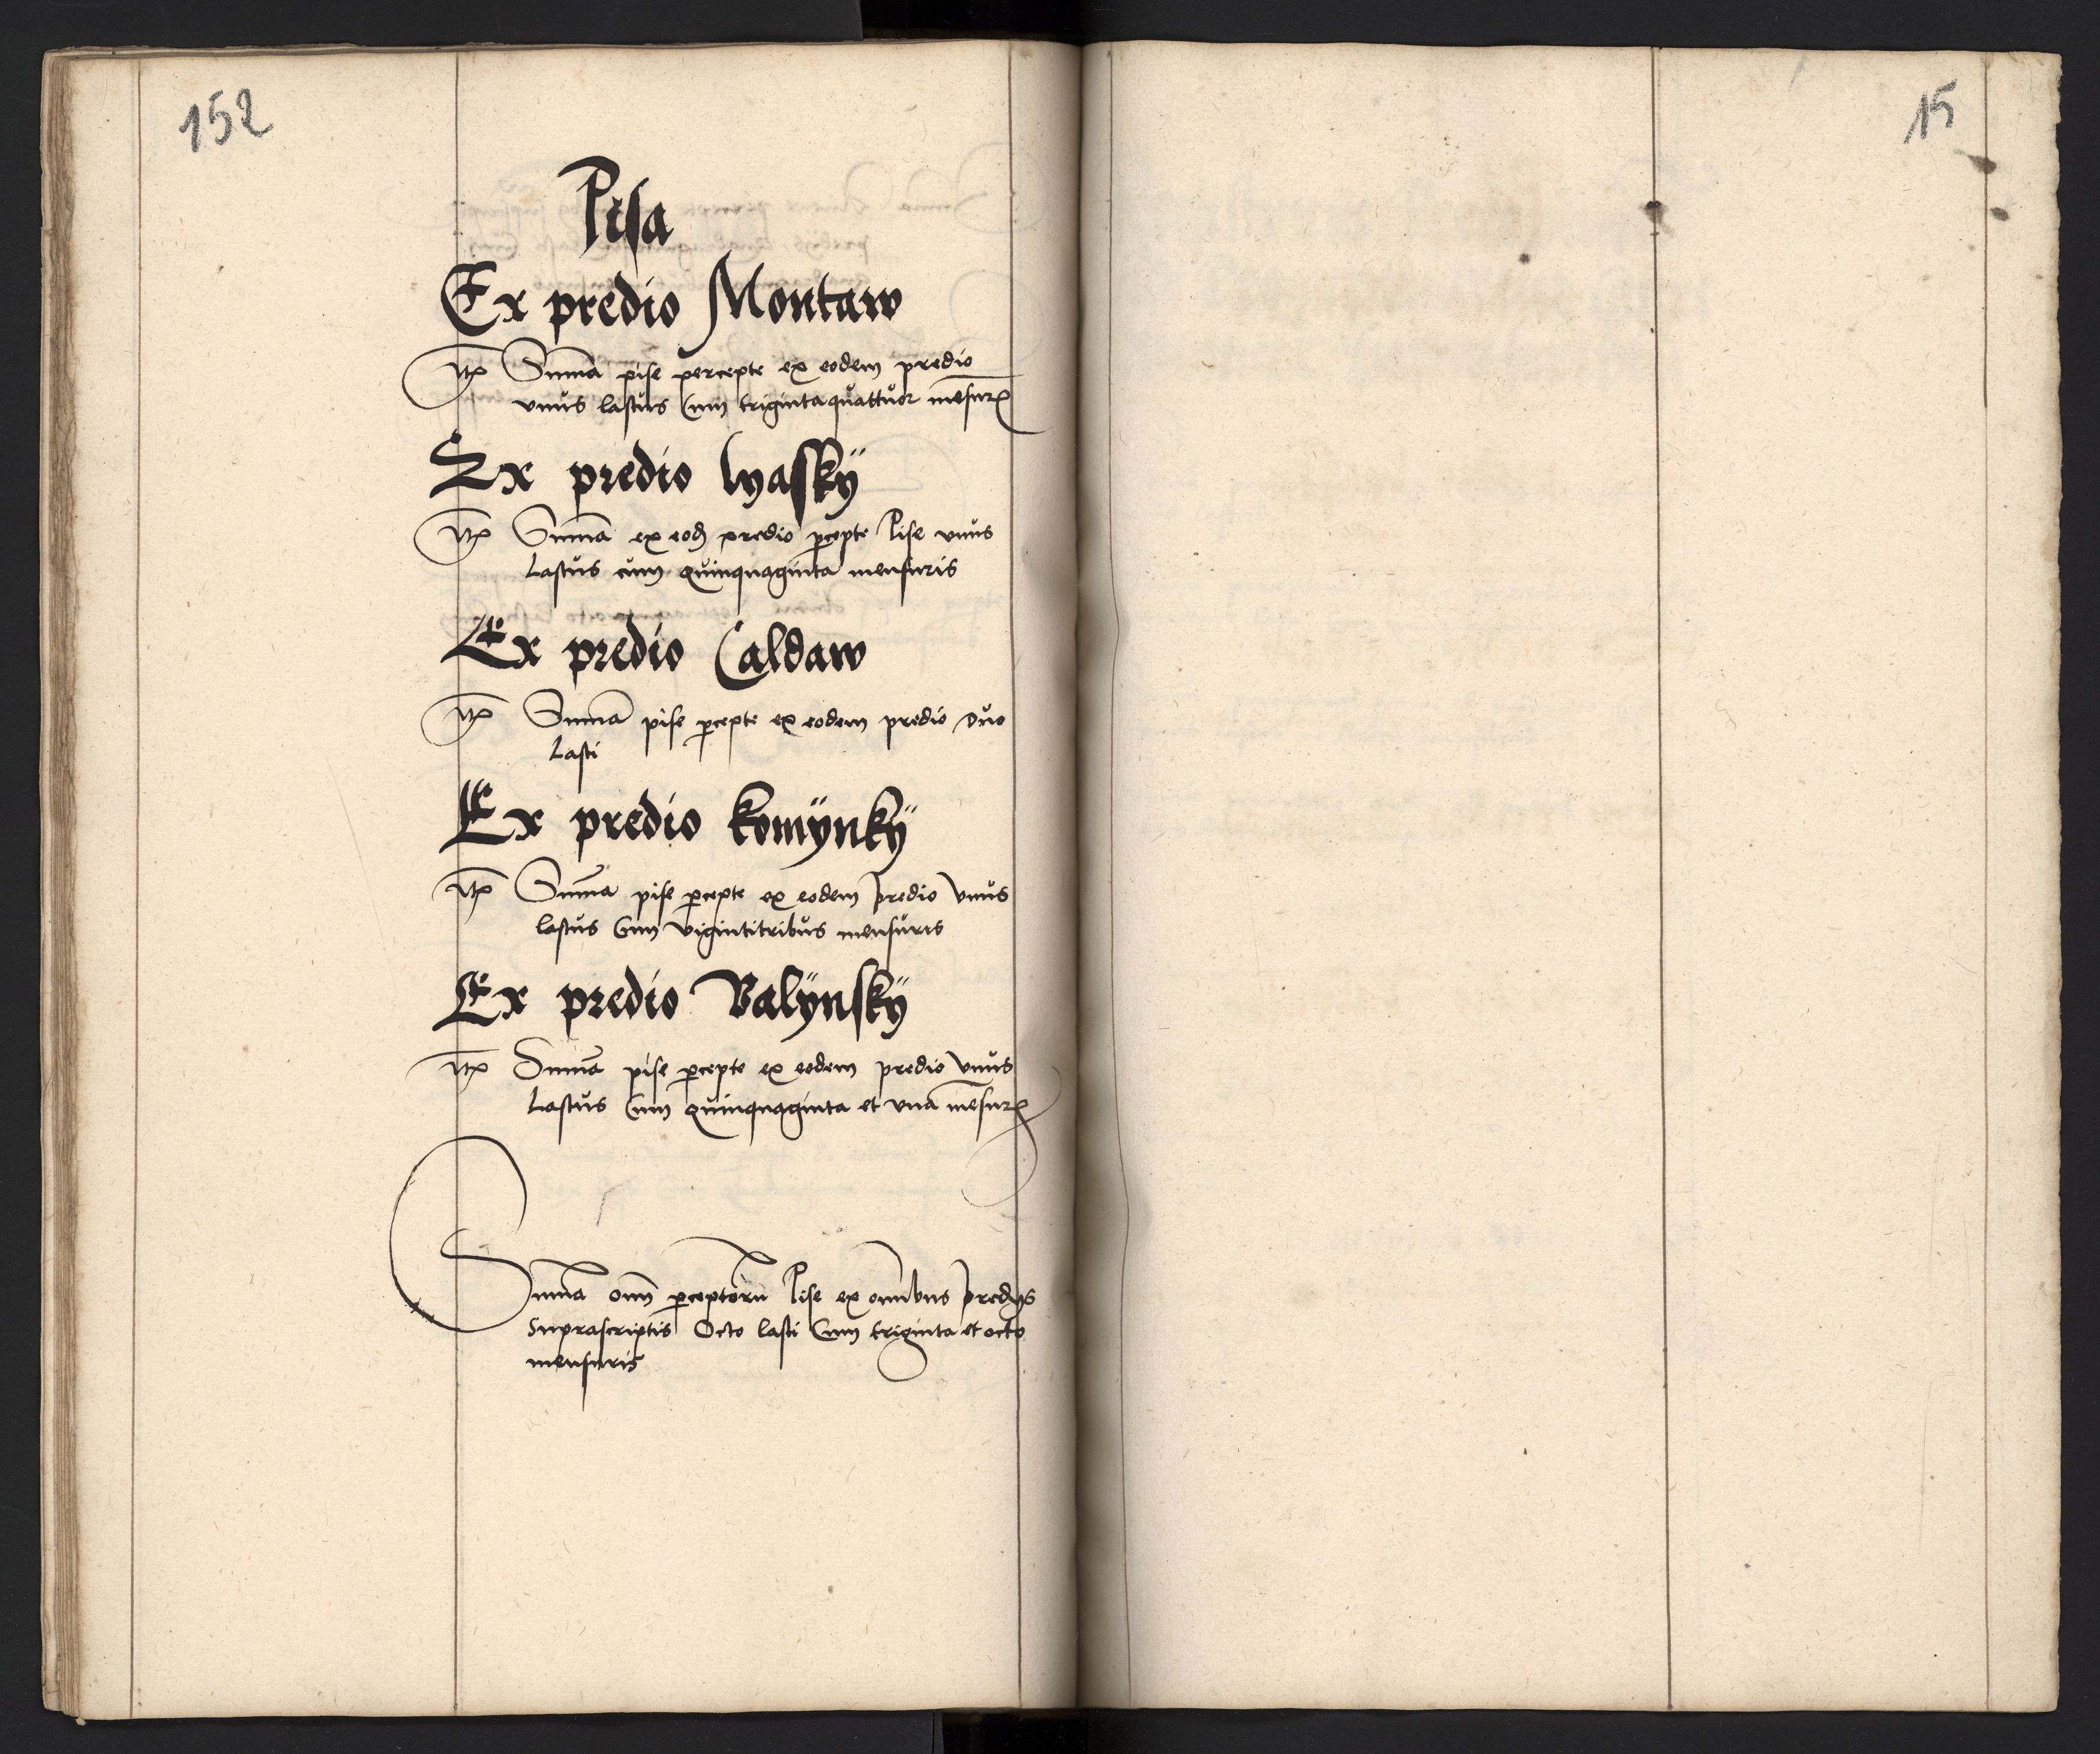 152
Pisa
Ex predio Montaw
Itm Summa pise percepte ex eodem predio
vnus lastus Cum trigintaquattuor mesur
Ex predio lyassky
Itm Summa ex eod predio pcepte Pise vnus
Lastus cum quinquaginta mensuris
Ex predio Caldaw
Itm Summa pise pcepte ex eodem predio duo
Lasti
Ex predio komÿnkÿ
Itm Summa pise pcepte ex eodem predio vnus
lastus Cum vigintitribus mensuris
Ex predio Balÿnskÿ
Itm Summa pise pcepte ex eodem predio vnus
Lastus Cum quinquaginta et vna mesur
Summa omn pceptoru Pise ex omnibus predys
Suprascriptis Octo lasti Cum triginta et octo
mensuris
15